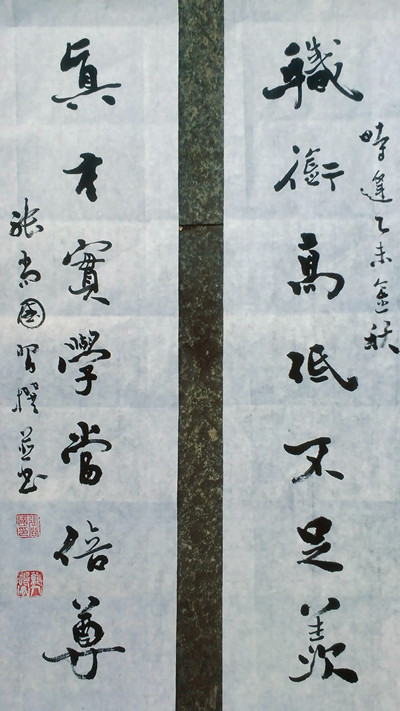 時逢乙未金秋
職銜高低不足羨
真才實學當倍尊
張尚國習撰並书